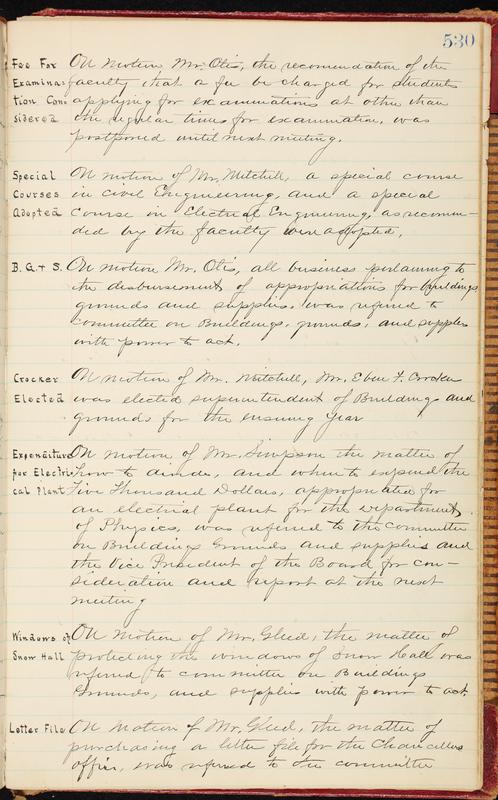 530
Fee For On motion Mr. Otis, the recomendation of the
Examina- faculty that a fee be charged for students
tion Con- applying for examinations at other than
sidered the regular times for examination, was
postponed until next meeting.
Special On motion of Mr. Mitchell, a special course
Courses in Civil Engineering, and a special
Adopted course in Electrical Engineering, as recommen-
ded by the faculty were adopted.
B. G. + S. On motion Mr. Otis, all business pertaining to
the disbursement of appropriations for buildings
grounds and supplies, was refered to
committee on Buildings, grounds, and supplies
with power to act.
Crocker On motion of Mr. Mitchell, Mr. Eben F. Crocker
Elected was elected superintendent of Buildings and
grounds for the ensuing year
Expenditure On motion of Mr. Simpson the matter of
for Electri- how to divide, and when to expend the
cal Plant Five Thousand Dollars, appropriated for
an electrical plant for the Department
of Physics, was refered to the committee
on Buildings Grounds and supplies and
the Vice President of the Board for con-
sideration and report at the next
meeting
Windows of On motion of Mr. Gleed, the matter of
Snow Hall protecting the windows of Snow Hall was
refered to committee on Buildings
Grounds, and supplies with power to act.
Letter File On motion of Mr. Gleed, the matter of
purchasing a letter file for the Chancellors
office, was refered to the committee